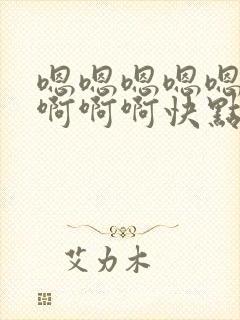 嗯嗯嗯嗯嗯
啊啊啊快點
艾力木